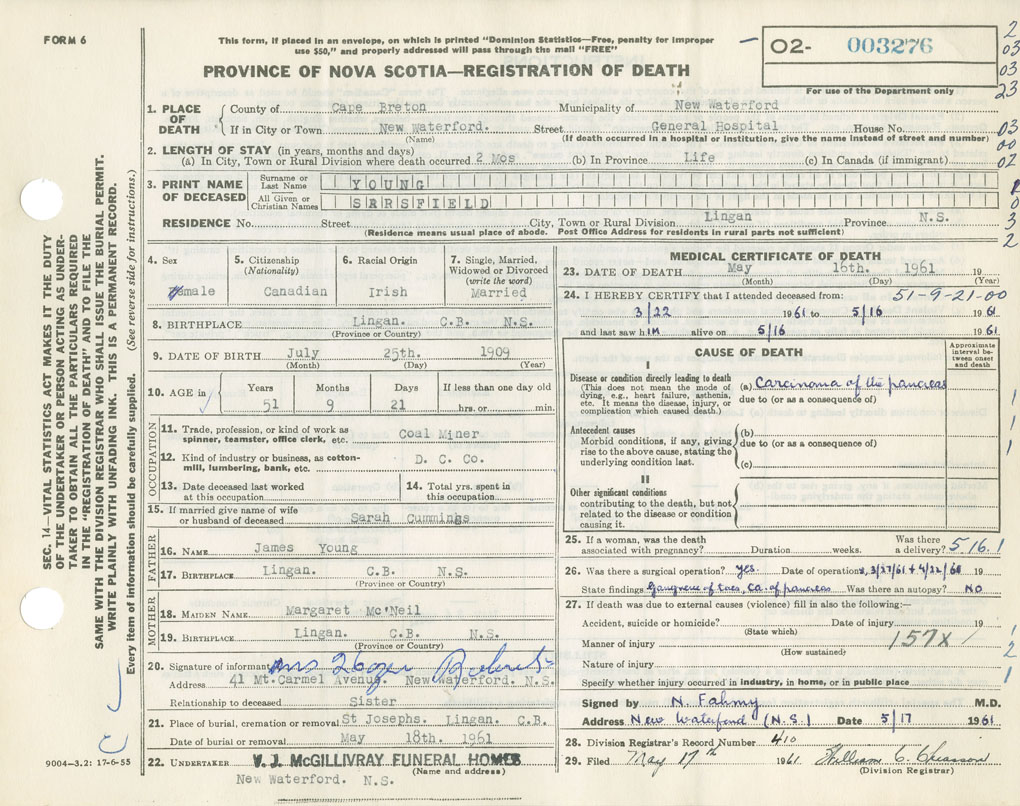 FORM 6
This form, if placed in an envelope, on which is printed "Dominion Statistics—Free, penalty for improper
use $50," and properly addressed will pass through the mail "FREE"
O2- 003276
For use of the Department only
PROVINCE OF NOVA SCOTIA—REGISTRATION OF DEATH
1. PLACE OF DEATH
County of Cape Breton Municipality of New Waterford
If in City or Town New Waterford. Street General Hospital House No.
(Name) (If death occurred in a hospital or institution, give the name instead of street and number)
2. LENGTH OF STAY (in years, months and days)
(a) In City, Town or Rural Division where death occurred 2 Mos (b) In Province Life (c) In Canada (if immigrant)
3. PRINT NAME OF DECEASED
Surname or Last Name YOUNG
All Given or Christian Names SARSFIELD
RESIDENCE No. Street City, Town or Rural Division Lingan Province N.S.
(Residence means usual place of abode. Post Office Address for residents in rural parts not sufficient)
SEC. 14—VITAL STATISTICS ACT MAKES IT THE DUTY
OF THE UNDERTAKER OR PERSON ACTING AS UNDER-
TAKER TO OBTAIN ALL THE PARTICULARS REQUIRED
IN THE "REGISTRATION OF DEATH" AND TO FILE THE
SAME WITH THE DIVISION REGISTRAR WHO SHALL ISSUE THE BURIAL PERMIT.
WRITE PLAINLY WITH UNFADING INK. THIS IS A PERMANENT RECORD.
Every item of information should be carefully supplied. (See reverse side for instructions.)
4. Sex male
5. Citizenship (Nationality) Canadian
6. Racial Origin Irish
7. Single, Married, Widowed or Divorced (write the word) Married
8. BIRTHPLACE Lingan. C.B. N.S.
(Province or Country)
9. DATE OF BIRTH July 25th. 1909
(Month) (Day) (Year)
10. AGE in Years 51 Months 9 Days 21 If less than one day old hrs. or min.
OCCUPATION
11. Trade, profession, or kind of work as
spinner, teamster, office clerk, etc. Coal Miner
12. Kind of industry or business, as cotton-
mill, lumbering, bank, etc. D. C. Co.
13. Date deceased last worked
at this occupation
14. Total yrs. spent in
this occupation
15. If married give name of wife
or husband of deceased Sarah Cummings
FATHER
16. NAME James Young
17. BIRTHPLACE Lingan. C.B. N.S.
(Province or Country)
MOTHER
18. MAIDEN NAME Margaret Mc'Neil
19. BIRTHPLACE Lingan. C.B. N.S.
(Province or Country)
20. Signature of informant Mrs
Address 41 Mt. Carmel Avenue. New Waterford. N.S.
Relationship to deceased Sister
21. Place of burial, cremation or removal St Josephs. Lingan. C.B.
Date of burial or removal May 18th. 1961
22. UNDERTAKER V. J. McGILLIVRAY FUNERAL HOMES
(Name and address)
New Waterford. N.S.
9004—3.2: 17-6-55
MEDICAL CERTIFICATE OF DEATH
23. DATE OF DEATH May 16th. 1961 19
(Month) (Day) (Year)
24. I HEREBY CERTIFY that I attended deceased from: 51-9-21-00
3/22 1961 to 5/16 1961
and last saw him alive on 5/16 1961
CAUSE OF DEATH
Approximate interval between onset and death
I
Disease or condition directly leading to death
(This does not mean the mode of
dying, e.g., heart failure, asthenia,
etc. It means the disease, injury, or
complication which caused death.)
(a) Carcinoma of the pancreas
due to (or as a consequence of)
Antecedent causes
Morbid conditions, if any, giving
rise to the above cause, stating the
underlying condition last.
(b)
due to (or as a consequence of)
(c)
II
Other significant conditions
contributing to the death, but not
related to the disease or condition
causing it.
25. If a woman, was the death
associated with pregnancy? Duration weeks. Was there
a delivery? 5.16.1
26. Was there a surgical operation? yes. Date of operations, 3/27/61 + 4/22/61 19
State findings Gangrene of toes, Ca. of pancreas Was there an autopsy? NO
27. If death was due to external causes (violence) fill in also the following:—
Accident, suicide or homicide? Date of injury 19
(State which)
Manner of injury 157X
(How sustained)
Nature of injury
Specify whether injury occurred in industry, in home, or in public place
Signed by N. Fahmy M.D.
Address New Waterford (N.S.) Date 5/17 1961
28. Division Registrar's Record Number 410
29. Filed May 17th 1961 William C Chiasson
(Division Registrar)